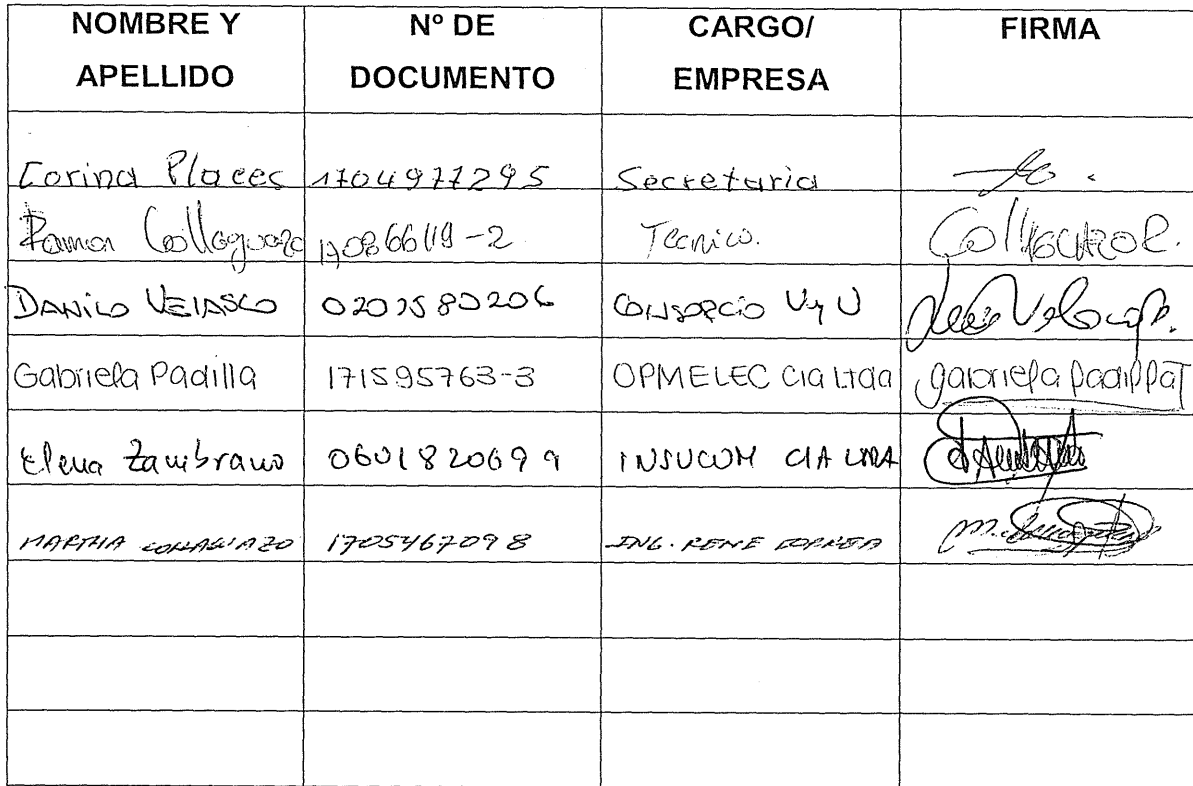 NOMBRE Y APELLIDO Nº DE DOCUMENTO CARGO/ EMPRESA FIRMA
Corina Placees 1704977295 Secretaria
Ramon Collaguazo 170866119-2 Tecnico.
DANILO VELASCO CONSORCIO V y U
Gabriela Padilla 171595763-3 OPMELEC Cia Ltda gabriela padilla T
Elena Zambrano 0601820699 INSUCOM CIA LTDA
MARTHA 1705467098 ING. RENE CORREA